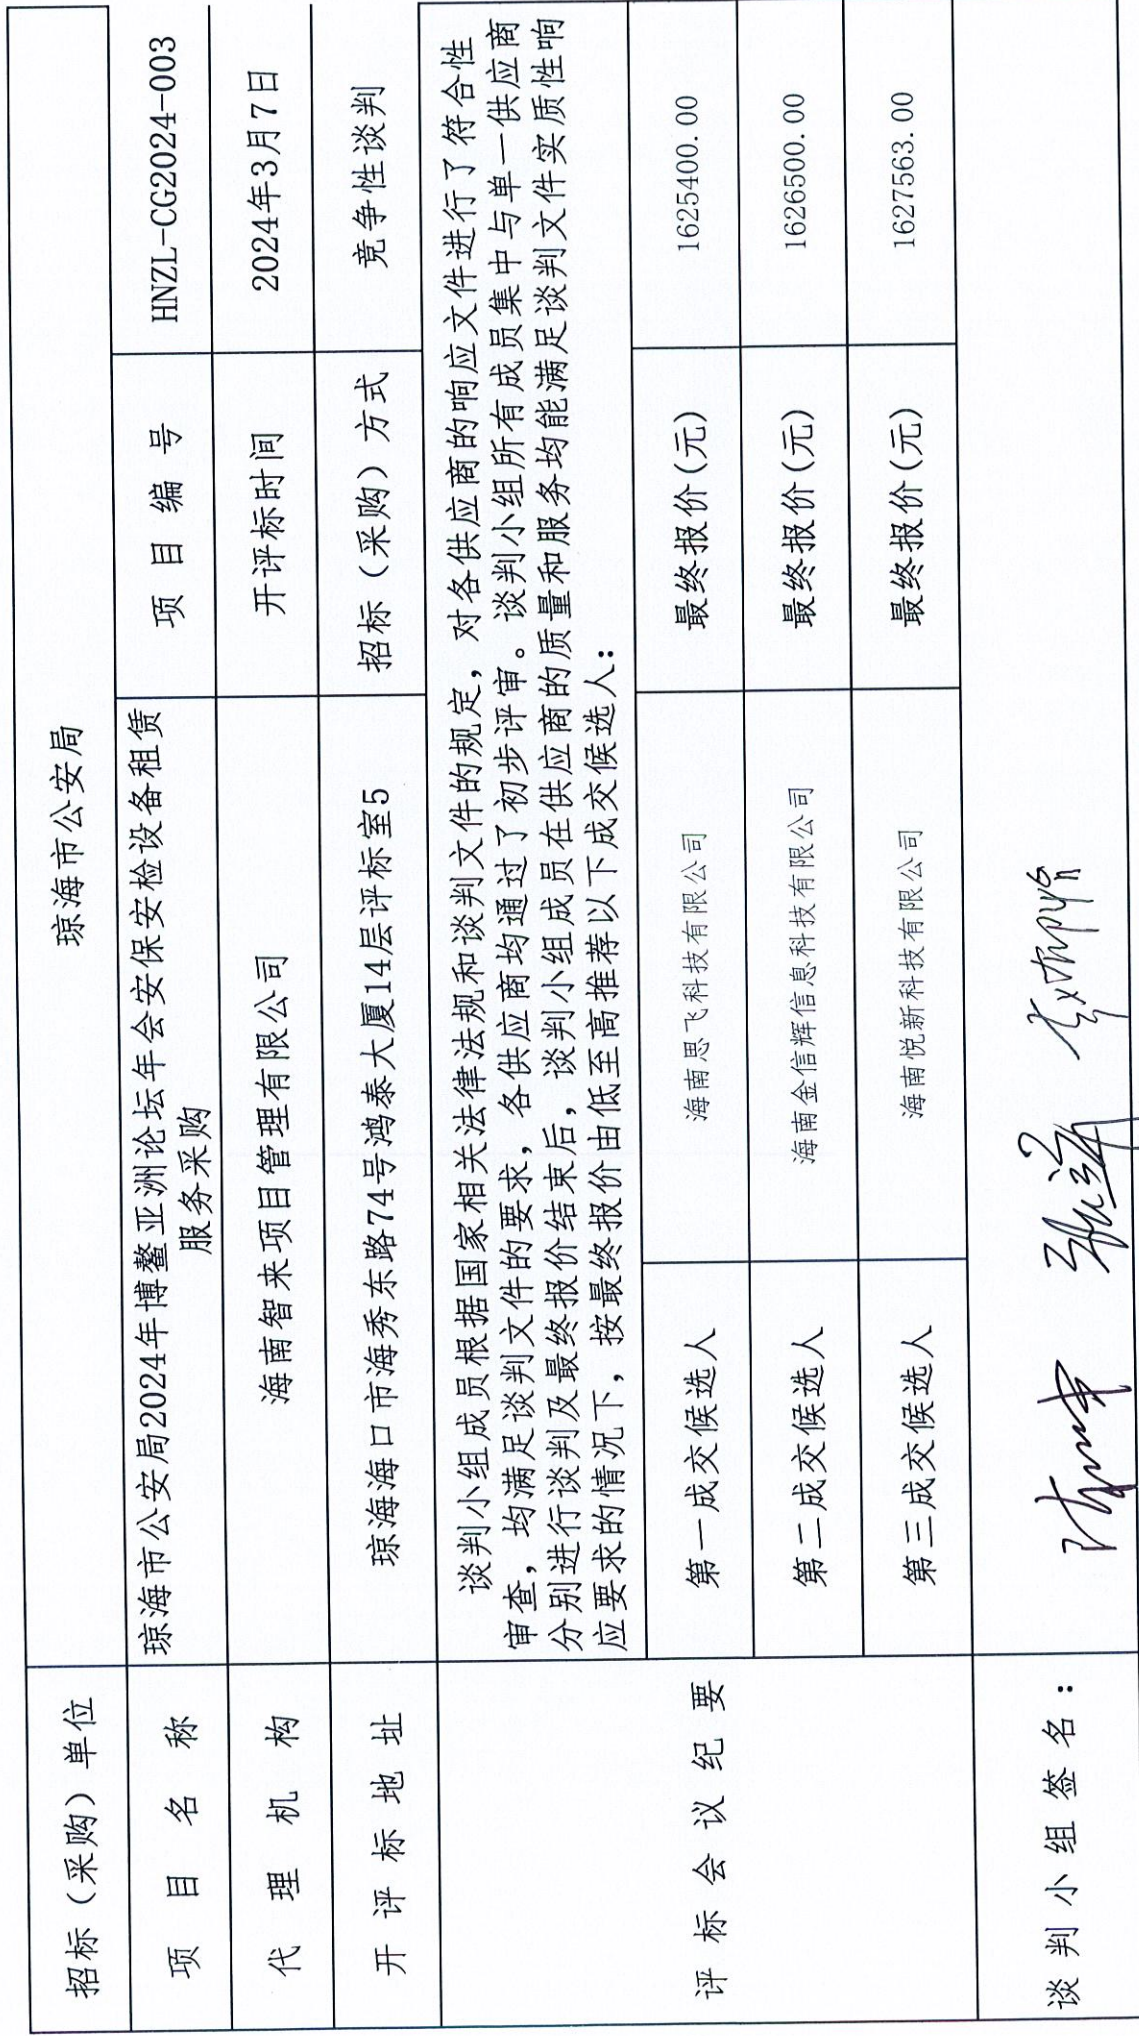 招标（采购）单位
琼海市公安局
项目名称
琼海市公安局2024年博鳌亚洲论坛年会安保安检设备租赁
服务采购
项目编号
HNZL-CG2024-003
代理机构
海南智来项目管理有限公司
开评标时间
2024年3月7日
开评标地址
琼海海口市海秀东路74号鸿泰大厦14层评标室5
招标（采购）方式
竞争性谈判
评标会议纪要
谈判小组成员根据国家相关法律法规和谈判文件的规定，对各供应商的响应文件进行了符合性
审查，均满足谈判文件的要求，各供应商均通过了初步评审。谈判小组所有成员集中与单一供应商
分别进行谈判及最终报价结束后，谈判小组成员在供应商的质量和服务均能满足谈判文件实质性响
应要求的情况下，按最终报价由低至高推荐以下成交候选人：
第一成交候选人
海南思飞科技有限公司
最终报价(元)
1625400.00
第二成交候选人
海南金信辉信息科技有限公司
最终报价(元)
1626500.00
第三成交候选人
海南悦新科技有限公司
最终报价(元)
1627563.00
谈判小组签名：